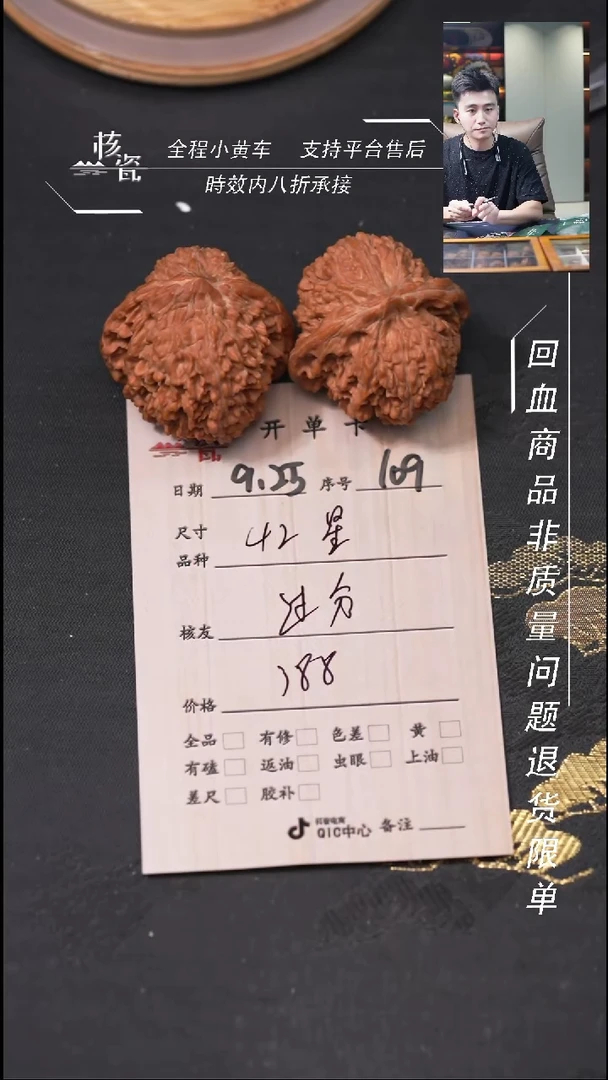 核瓷
全程小黄车 支持平台售后
時效内八折承接
回血商品非质量问题退货限单
开单卡
日期 9.25 序号 109
尺寸
品种 42 星
核友 过分
价格 188
全品 有修 色差 黄
有磕 返油 虫眼 上油
差尺 胶补
抖音电商
QIC中心 备注